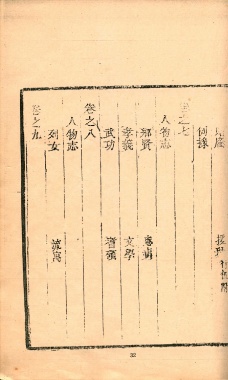 卷之七
人物志
鄉賢
孝義 文學
武功 耆碩
卷之八
人物志
列女 流寓
卷之九
32